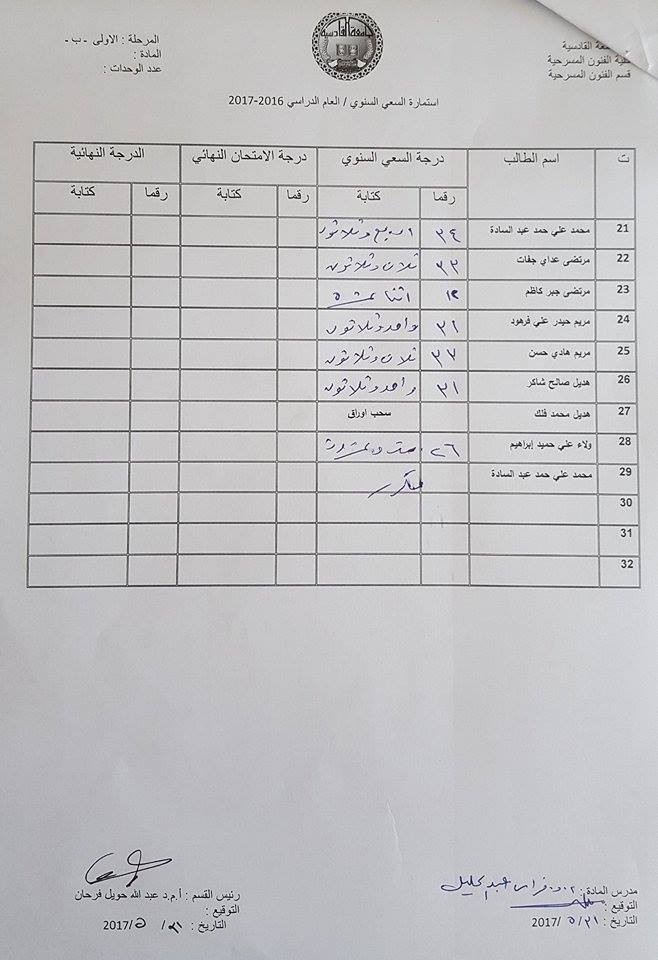 جامعة القادسية
كلية الفنون المسرحية
قسم الفنون المسرحية
جامعة القادسية
المرحلة : الاولى - ب -
المادة :
عدد الوحدات :
استمارة السعي السنوي / العام الدراسي 2016-2017
ت اسم الطالب درجة السعي السنوي درجة الامتحان النهائي الدرجة النهائية
رقما كتابة رقما كتابة رقما كتابة
21 محمد علي حمد عبد السادة ٣٤ اربع وثلاثون
22 مرتضى عداي جفات ٣٣ ثلاث وثلاثون
23 مرتضى جبر كاظم ١٢ اثنا عشر
24 مريم حيدر علي فرهود ٣١ واحد وثلاثون
25 مريم هادي حسن ٣٣ ثلاث وثلاثون
26 هديل صالح شاكر ٣١ واحد وثلاثون
27 هديل محمد فلك سحب اوراق
28 ولاء علي حميد إبراهيم ٢٦ ست وعشرون
29 محمد علي حمد عبد السادة مكرر
30
31
32
مدرس المادة : م.د. فراس عبد الجليل
التوقيع :
التاريخ : ٢١/ ٥ /2017
رئيس القسم : أ.م.د عبد الله حويل فرحان
التوقيع :
التاريخ : ٢١/ ٥ /2017